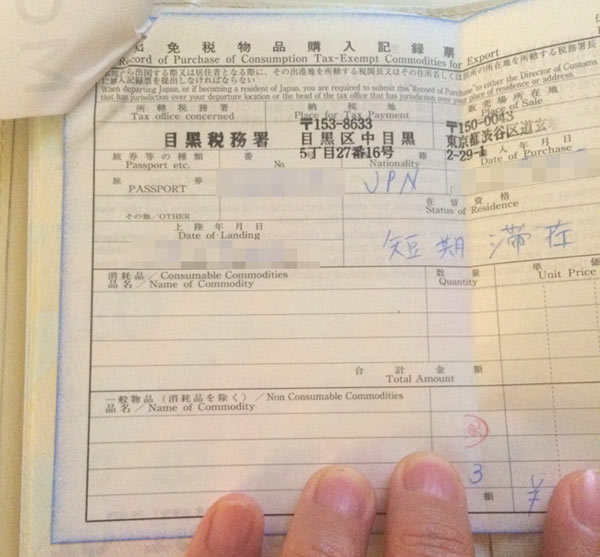 免税物品購入記録票
Record of Purchase of Consumption Tax-Exempt Commodities for Export
本邦から出国する際又は居住者となる際に、その出港地を所轄する税関長又はその住所若しくは居所の所在地を所轄する税務署長
に購入記録票を提出しなければならない
When departing Japan, or if becoming a resident of Japan, you are required to submit this "Record of Purchase" to either the Director of Customs
that has jurisdiction over your departure location or the head of the tax office that has jurisdiction over your place of residence or address.
所轄税務署
Tax office concerned
目黒税務署
納税地
Place for Tax Payment
〒153-8633
目黒区中目黒
5丁目27番16号
販売場所在地
Place of Sale
〒150-0043
東京都渋谷区道玄坂
2-29-1
旅券等の種類
Passport etc.
番号
No
国籍
Nationality
購入年月日
Date of Purchase
旅券
PASSPORT
JPN
その他/OTHER
在留資格
Status of Residence
上陸年月日
Date of Landing
短期滞在
消耗品/Consumable Commodities
品名/Name of Commodity
数量
Quantity
単価
Unit Price
合計金額
Total Amount
一般物品(消耗品を除く)/Non Consumable Commodities
品名/Name of Commodity
3
額
¥